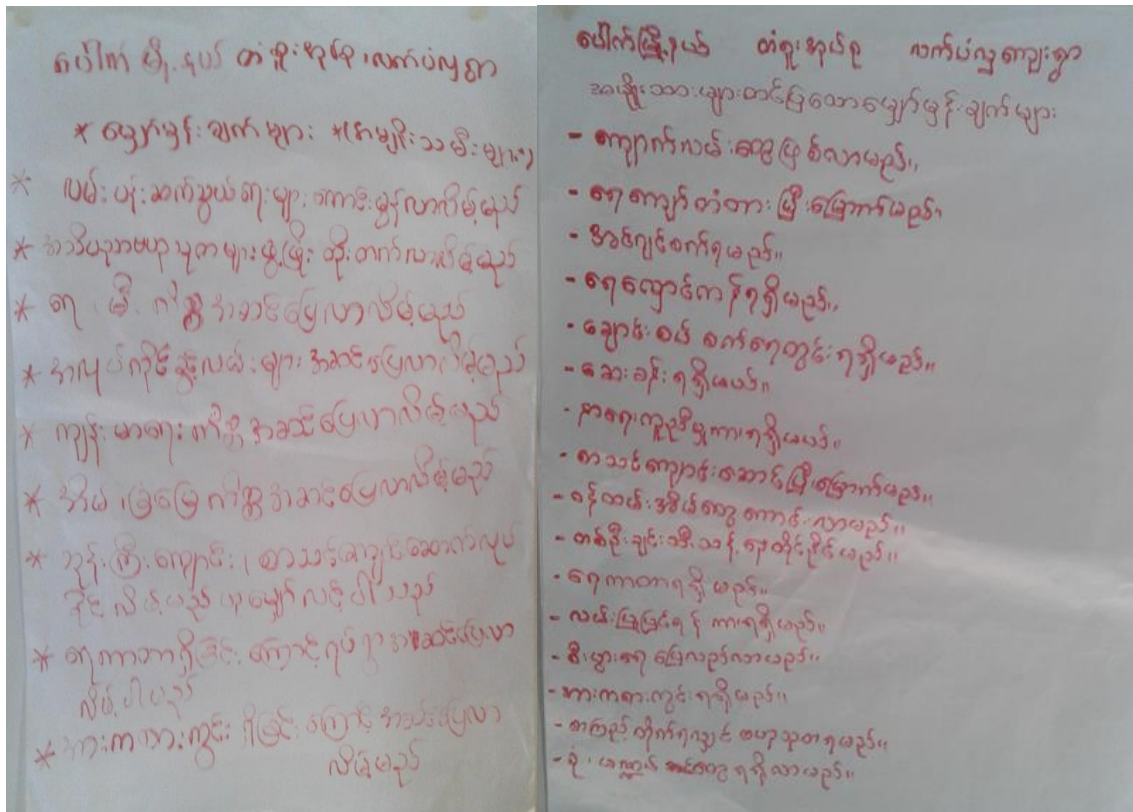 ပေါက်မြို့နယ် တံရှုးအုပ်စု၊ လက်ပံလှရွာ
* မျှော်မှန်းချက်များ * (အမျိုးသမီးများ)
* လမ်းပန်းဆက်သွယ်ရေးများ ကောင်းမွန်လာလိမ့်မည်
* အသိပညာဗဟုသုတများ ဖွံ့ဖြိုး တိုးတက်လာလိမ့်မည်
* ရေ မီး ကိစ္စ အဆင်ပြေလာလိမ့်မည်
* အလုပ်ကိုင် အဆင်ပြေလာလိမ့်မည်
* ကျန်းမာရေး ကိစ္စ အဆင်ပြေလာလိမ့်မည်
* အိမ် ၊ ခြံမြေ ကိစ္စ အဆင်ပြေလာလိမ့်မည်
* ဘုန်းကြီးကျောင်း ၊ စာသင်ကျောင်းဆောက်လုပ်
နိုင်လိမ့်မည်ဟု မျှော်လင့်ပါသည်
* ရေကာတာရှိခြင်းကြောင့် ရပ်ရွာအဆင်ပြေလာ
လိမ့်ပါမည်
* အားကစားကွင်း ရှိခြင်းကြောင့် အဆင်ပြေလာ
လိမ့်မည်
ပေါက်မြို့နယ် တံရှုးအုပ်စု လက်ပံလှကျေးရွာ
အမျိုးသားများတင်ပြသောမျှော်မှန်းချက်များ
- ကျောက်လမ်းတွေဖြစ်လာမည်။
- ရေကျော်တံတား ပြီးမြောက်မည်။
- အင်ဂျင်စက်ရမည်။
- ရေလှောင်ကန်ရရှိမည်။
- ချောင်းစပ် စက်ရေတွင်းရရှိမည်။
- ဆေးခန်းရရှိမယ်။
- နာရေးကူညီမှုကားရရှိမယ်။
- စာသင်ကျောင်းဆောင်ပြီးမြောက်မည်။
- ဝန်ထမ်းအိမ်တွေကောင်းလာမည်။
- တစ်ဦးချင်းသီးသန့်နေထိုင်နိုင်မည်။
- ရေကာတာရရှိမည်။
- လမ်းပြုပြင်ရန် ကားရရှိမည်။
- စီးပွားရေးပြေလည်လာမည်။
- အားကစားကွင်းရရှိမည်။
- စာကြည့်တိုက်ရလျှင် ဗဟုသုတရမည်။
- ရရှိလာမည်။